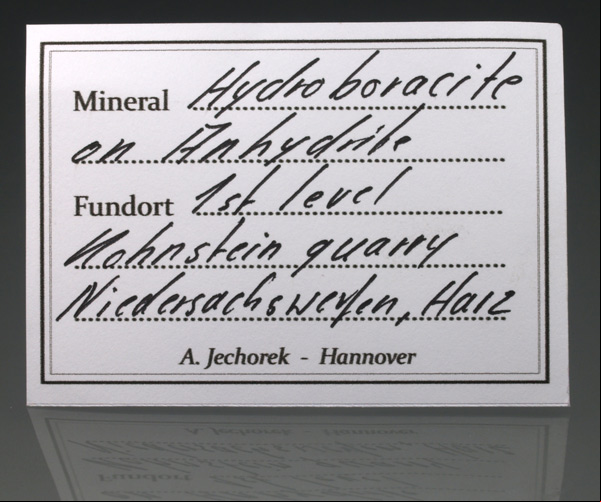 Mineral Hydroboracite
on Anhydrite
Fundort 1st level
Kohnstein quarry
Niedersachswerfen, Harz
A. Jechorek - Hannover